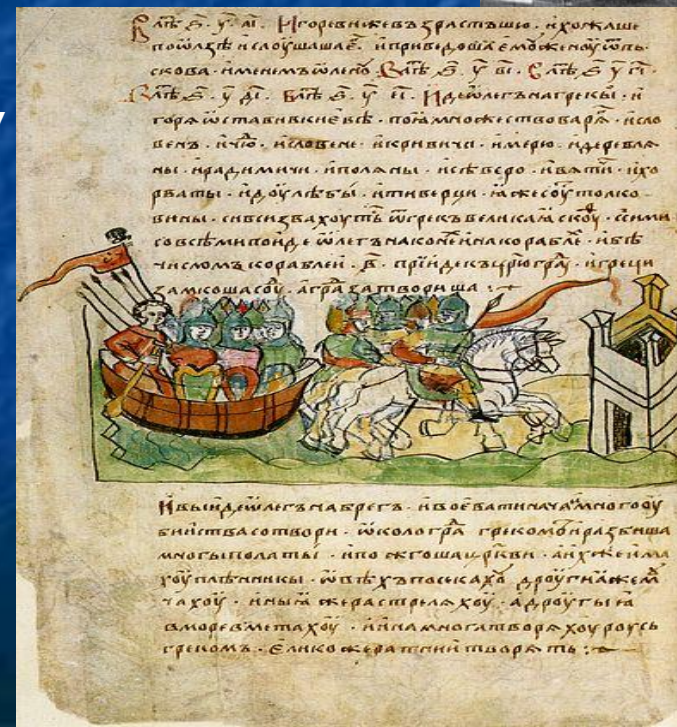 В лѣⷮ ҂ѕ҃ у҃ аі҃. Игореви же възрастъшю. и хожаше
по ѡлзѣ и слоушаша е҃. и приведоша емоу женоу ѿ пь
скова. именемъ ѡленоⷹ. В лѣⷮ ҂ѕ҃ у҃ ві҃. В лѣⷮ ҂ѕ҃ у҃ гі҃.
В лѣⷮ ҂ѕ҃ у҃ ді҃. В лѣⷮ ҂ѕ҃ у҃ еі҃. Иде ѡлегъ на грекы. и
горѧ ѡставив киевѣ. поѧ множество варѧⷢ. и сло
венъ. и чюⷣ. и словене. и кривичи. и мерю. и деревлѧ
ны. и радимичи. и полѧны. и сѣверо. и вѧтичи. и хо
рваты. и доулѣбы. и тиверци. ꙗже соуⷮ толко
вины. си вси звахоутьⷭ ѿ грекъ великаꙗ скоуⷴ. с сими
со всѣми поиде ѡлегъ на конеи и на кораблѣ. и бѣ
числомъ кораблеи. ҂в҃. прїиде къ црю граⷣ. и греци
замкоша соуⷣ. а граⷣ затвориша
И выиде ѡлегъ на брегъ. и воевати нача. и много оу
биства сотвори. ѡколо граⷣ грекомъ. и разбиша
многы полаты. и пожгоша црⷪкви. а ихже има
хоу плѣнникы. ѡвѣхъ посекахоу дроугиꙗ же м
чахоу. иныꙗ же растрелѧхоу. а дроугыꙗ
в море вметахоу. и ина многа творѧхоу роусь
грекомъ. елико же ратнии творѧть